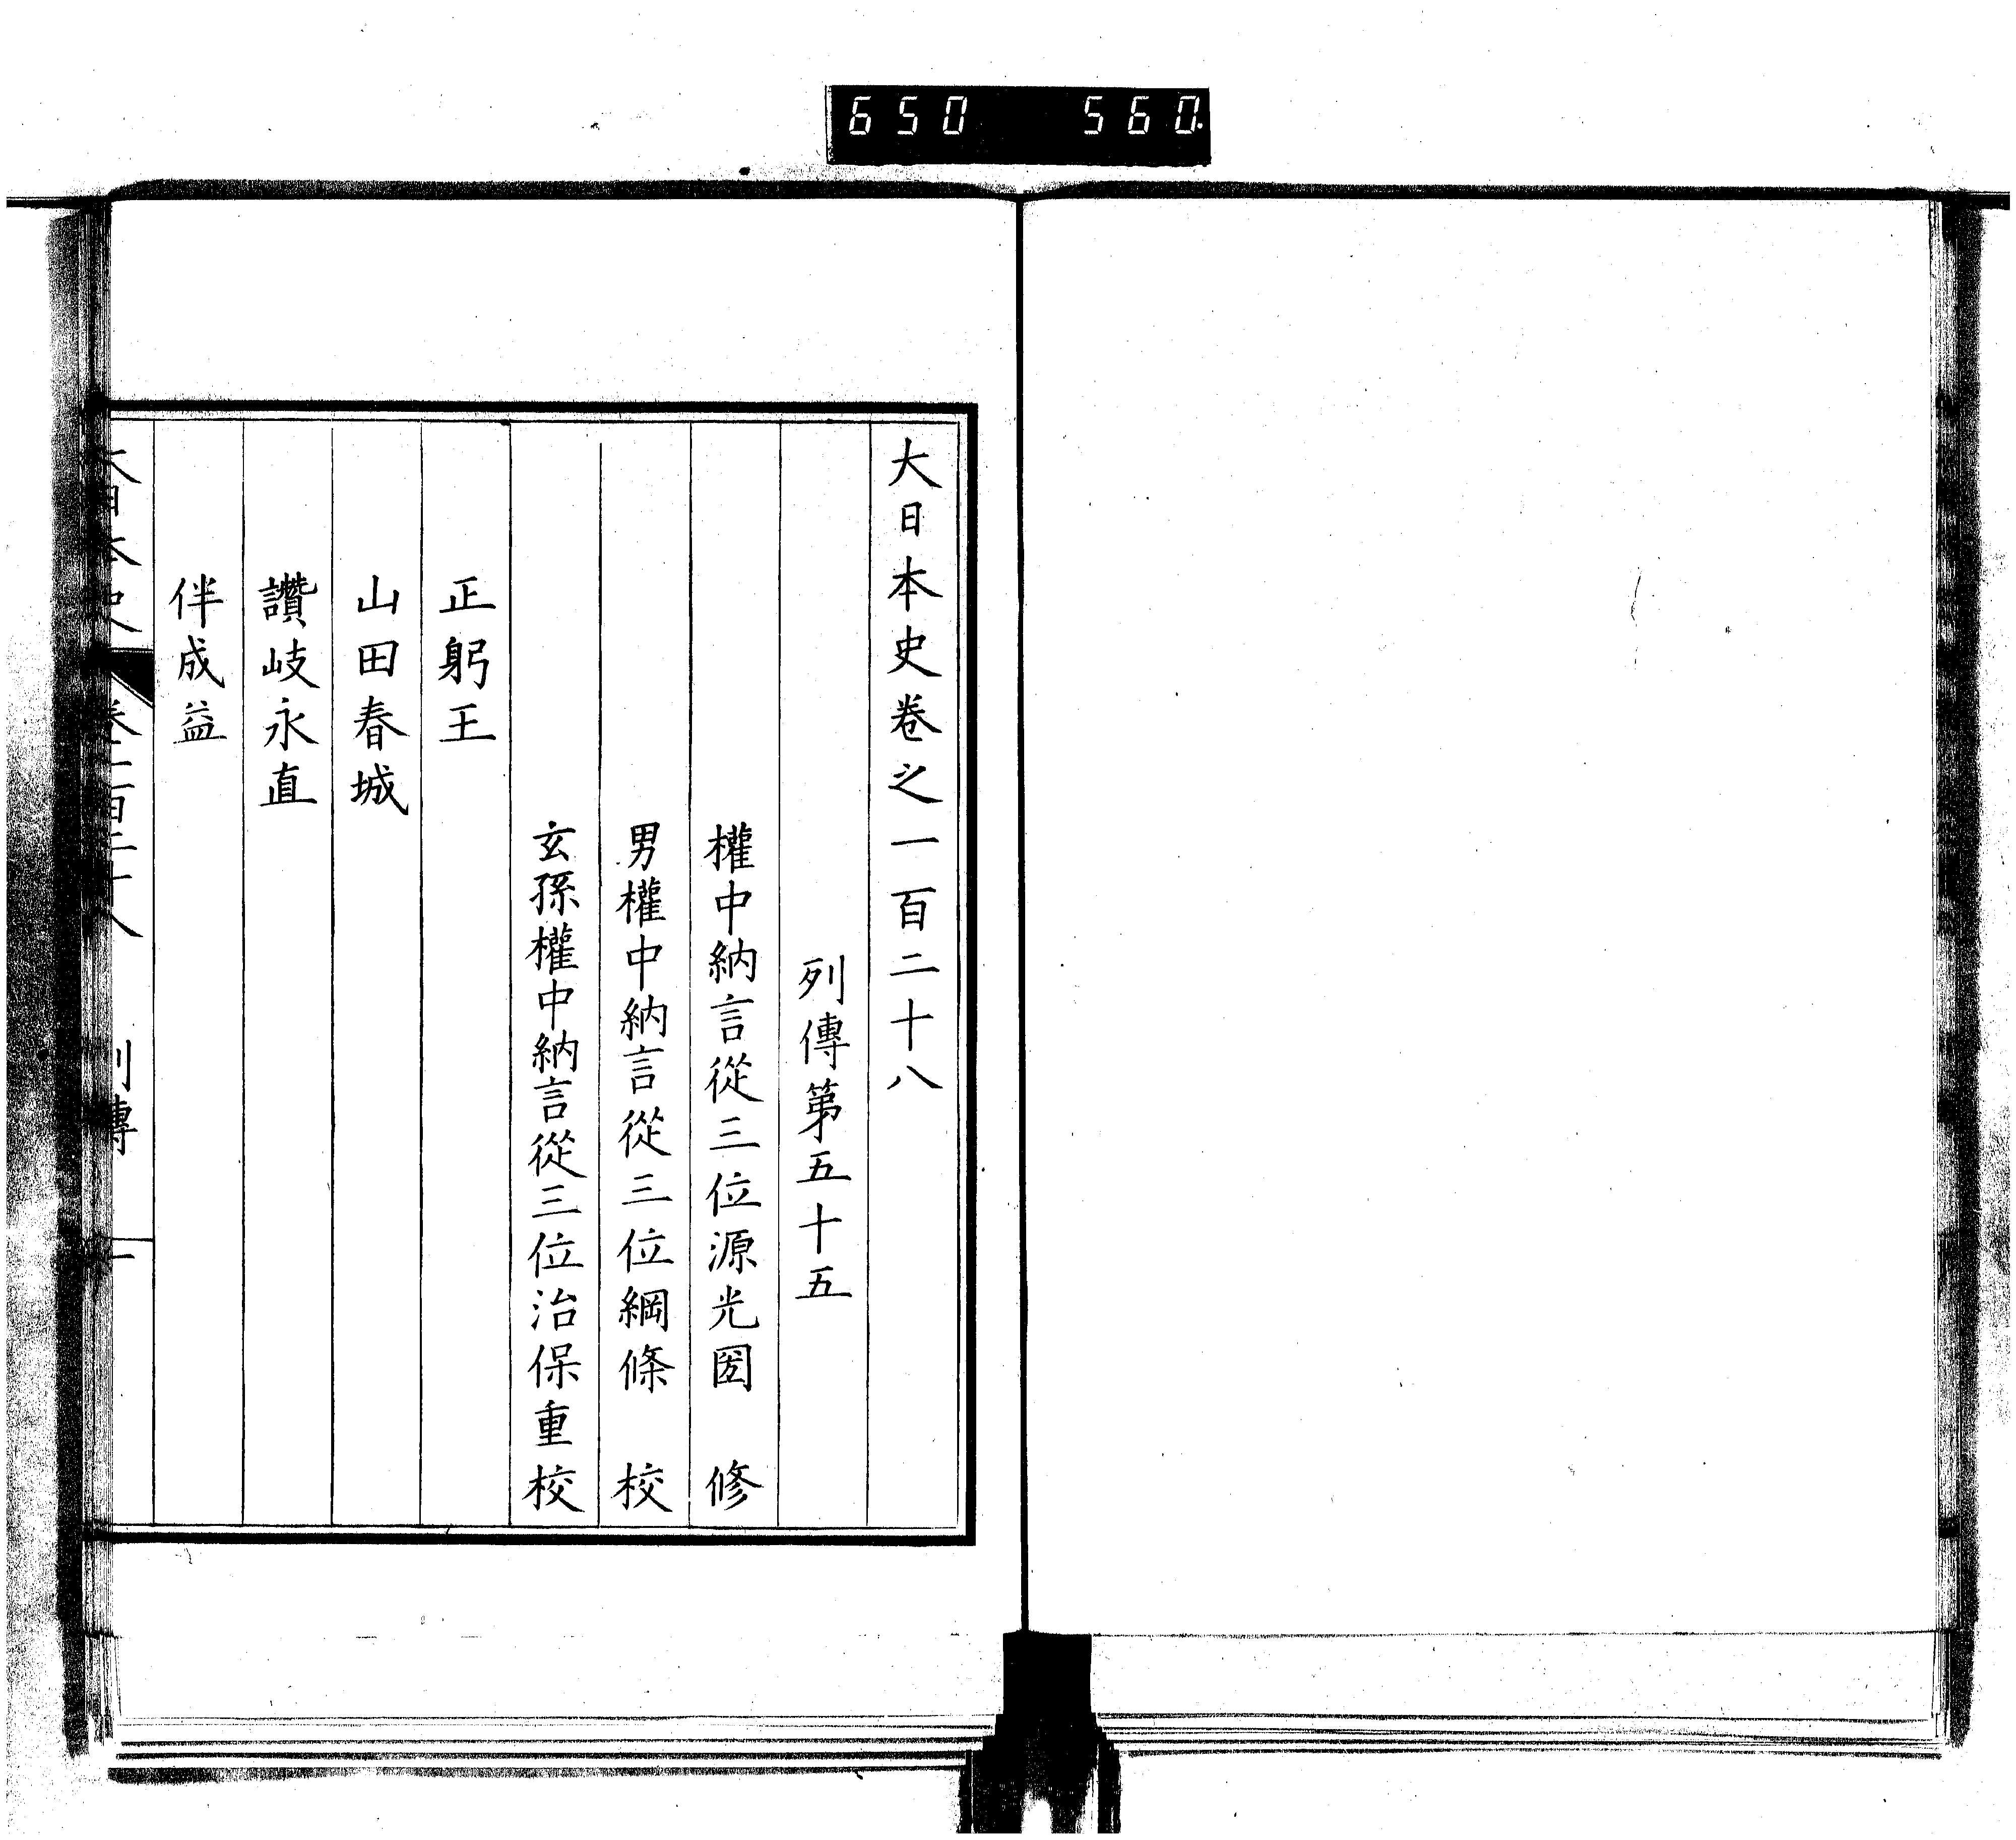 650 560
大日本史卷之一百二十八
列傳第五十五
權中納言從三位源光圀 修
男權中納言從三位綱條 校
玄孫權中納言從三位治保重校
正躬王
山田春城
讚岐永直
伴成益
大日本史 卷一百二十八 列傳 一